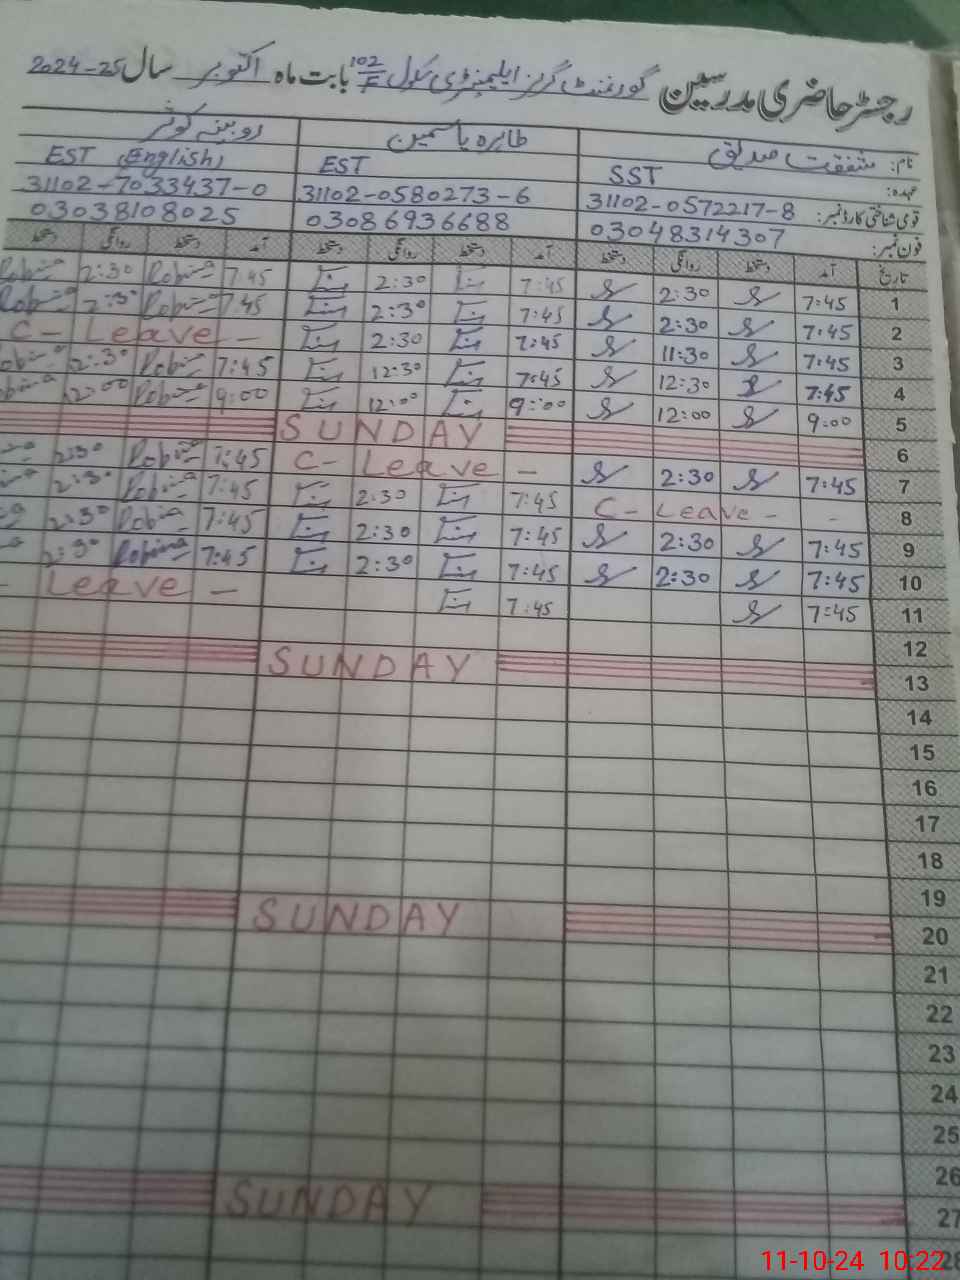 رجسٹر حاضری مدرسین گورنمنٹ گرلز ایلیمنٹری سکول 102/F بابت ماہ اکتوبر سال 2024-25
نام: شفقت صدیق طاہرہ یاسمین روبینہ کوثر
عہدہ: SST EST EST (English)
قومی شناختی کارڈ نمبر: 31102-0572217-8 31102-0580273-6 31102-7033437-0
فون نمبر: 03048314307 03086936688 03038108025
تاریخ آمد دستخط روانگی دستخط آمد دستخط روانگی دستخط آمد دستخط روانگی دستخط
1 7:45 2:30 7:45 2:30 7:45 Robina 2:30 Robina
2 7:45 2:30 7:45 2:30 7:45 Robina 2:30 Robina
3 7:45 11:30 7:45 2:30 C- Leave -
4 7:45 12:30 7:45 12:30 7:45 Robina 2:30
5 9:00 12:00 9:00 12:00 9:00 Robina 12:00
6 SUNDAY
7 7:45 2:30 C- Leave - 7:45 Robina 2:30
8 C- Leave - - 7:45 2:30 7:45 Robina 2:30
9 7:45 2:30 7:45 2:30 7:45 Robina 2:30
10 7:45 2:30 7:45 2:30 7:45 Robina 2:30
11 7:45 7:45 - Leave -
12
13 SUNDAY
14
15
16
17
18
19
20 SUNDAY
21
22
23
24
25
26
27 SUNDAY
28
11-10-24 10:22